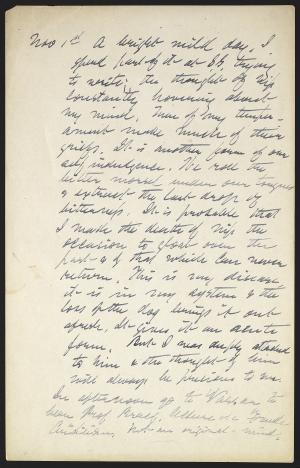 Nov 1st A bright mild day. I
spend part of it at S.S. trying
to write; the thought of Nip
constantly hovering about
my mind. Men of my temper-
ament make much of their
griefs. It is another form of our
self indulgence. We roll the
bitter morsel under our tongues
& extract the last drop of
bitterness. It is probable that
I make the death of Nip the
occasion to glow over the
past & of that which can never
return. This is my disease
it is in my system & the
loss of the dog brings it out
afresh. It gives it an acute
form. But I was deeply attached
to him & the thought of him
will always be precious to me.
In afternoon go to Vassar to
hear Prof
Not an original mind.